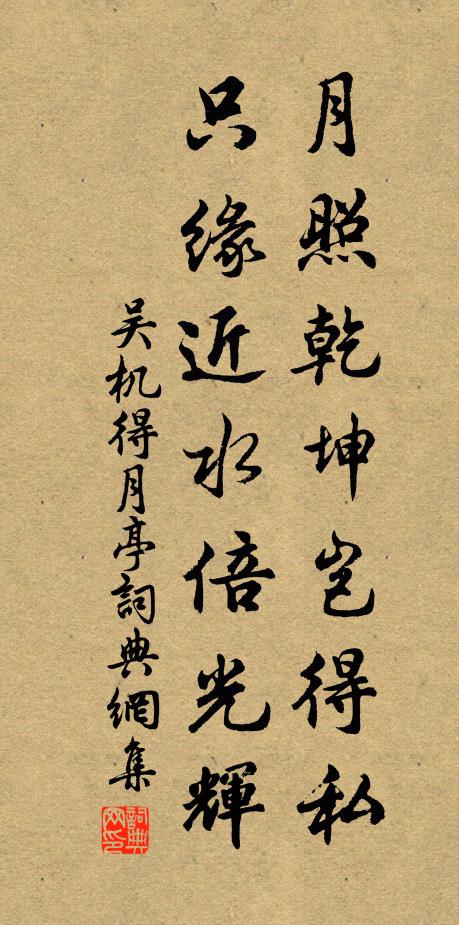 月照乾坤岂得私
只缘近水倍光輝
吴机得月亭詞典網集
詞典网印